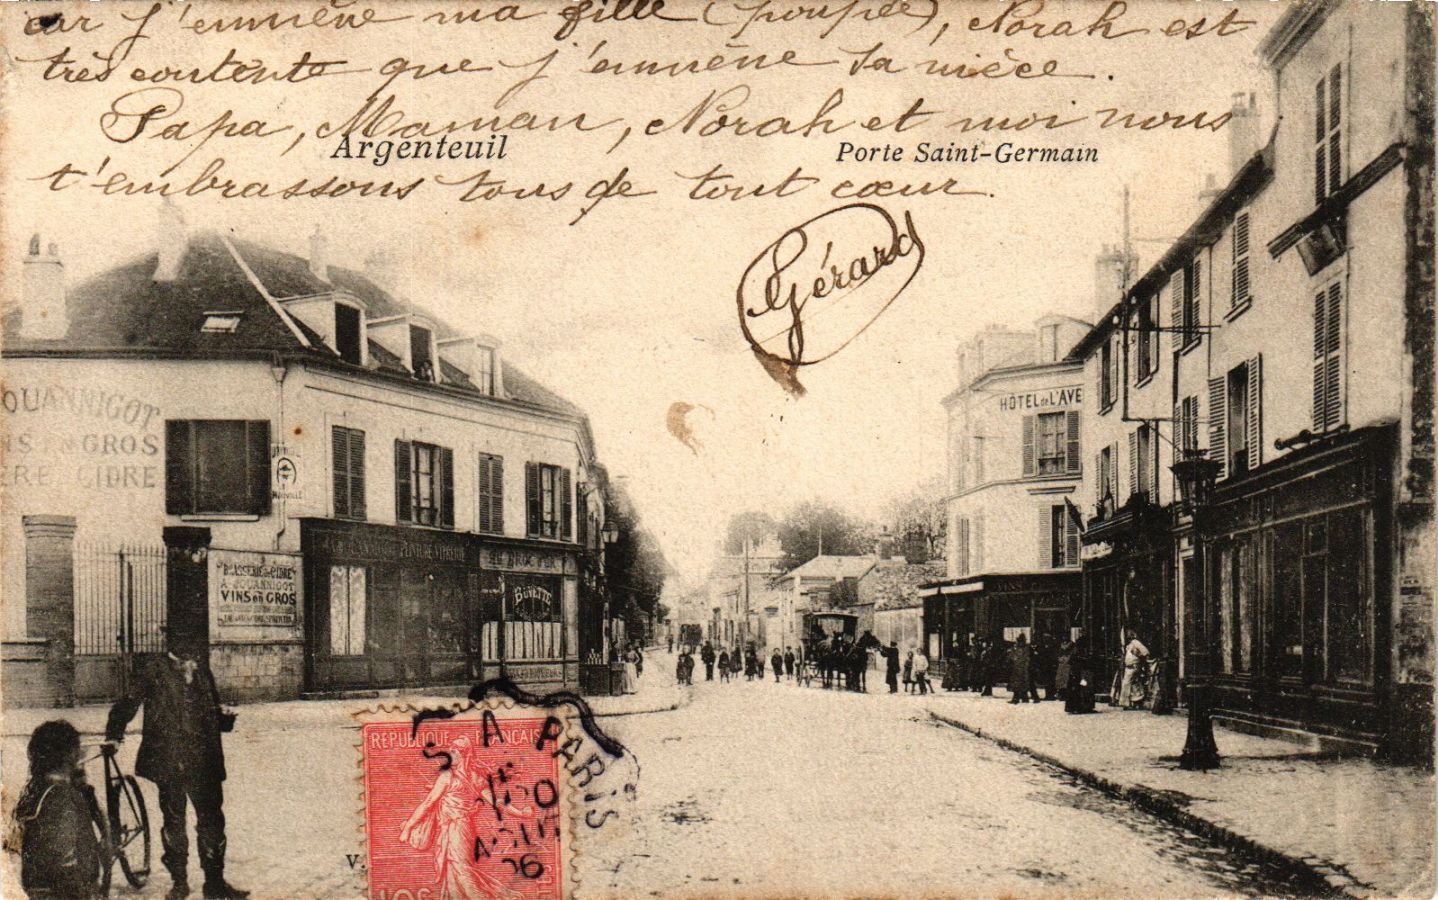 car j'emmène ma fille (poupée), Norah est
très contente que j'emmène sa nièce.
Papa, Maman, Norah et moi nous
Argenteuil
Porte Saint-Germain
t'embrassons tous de tout cœur.
Gérard
HÔTEL de L'AVE
OUANNIGOT
NS EN GROS
ÈRE CIDRE
BRASSERIE de CIDRE
VINS en GROS
PEINTURE VITRERIE
AU BROC D'OR
BUVETTE
REPUBLIQUE FRANÇAIS
10
POSTES
S A PARIS
AOUT
06
V.